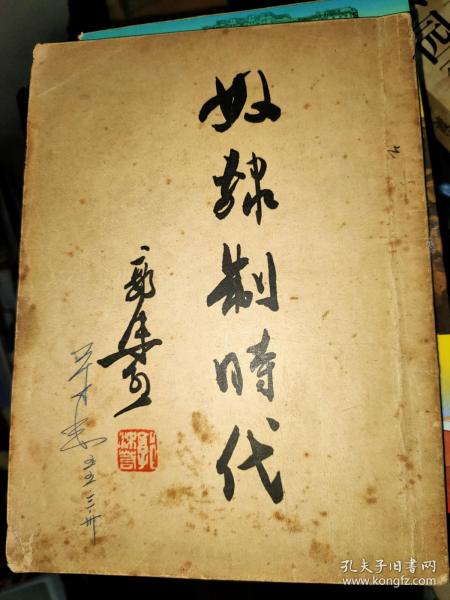 奴隸制時代
郭沫若
五五、三、卅
孔夫子旧书网
www.kongfz.com